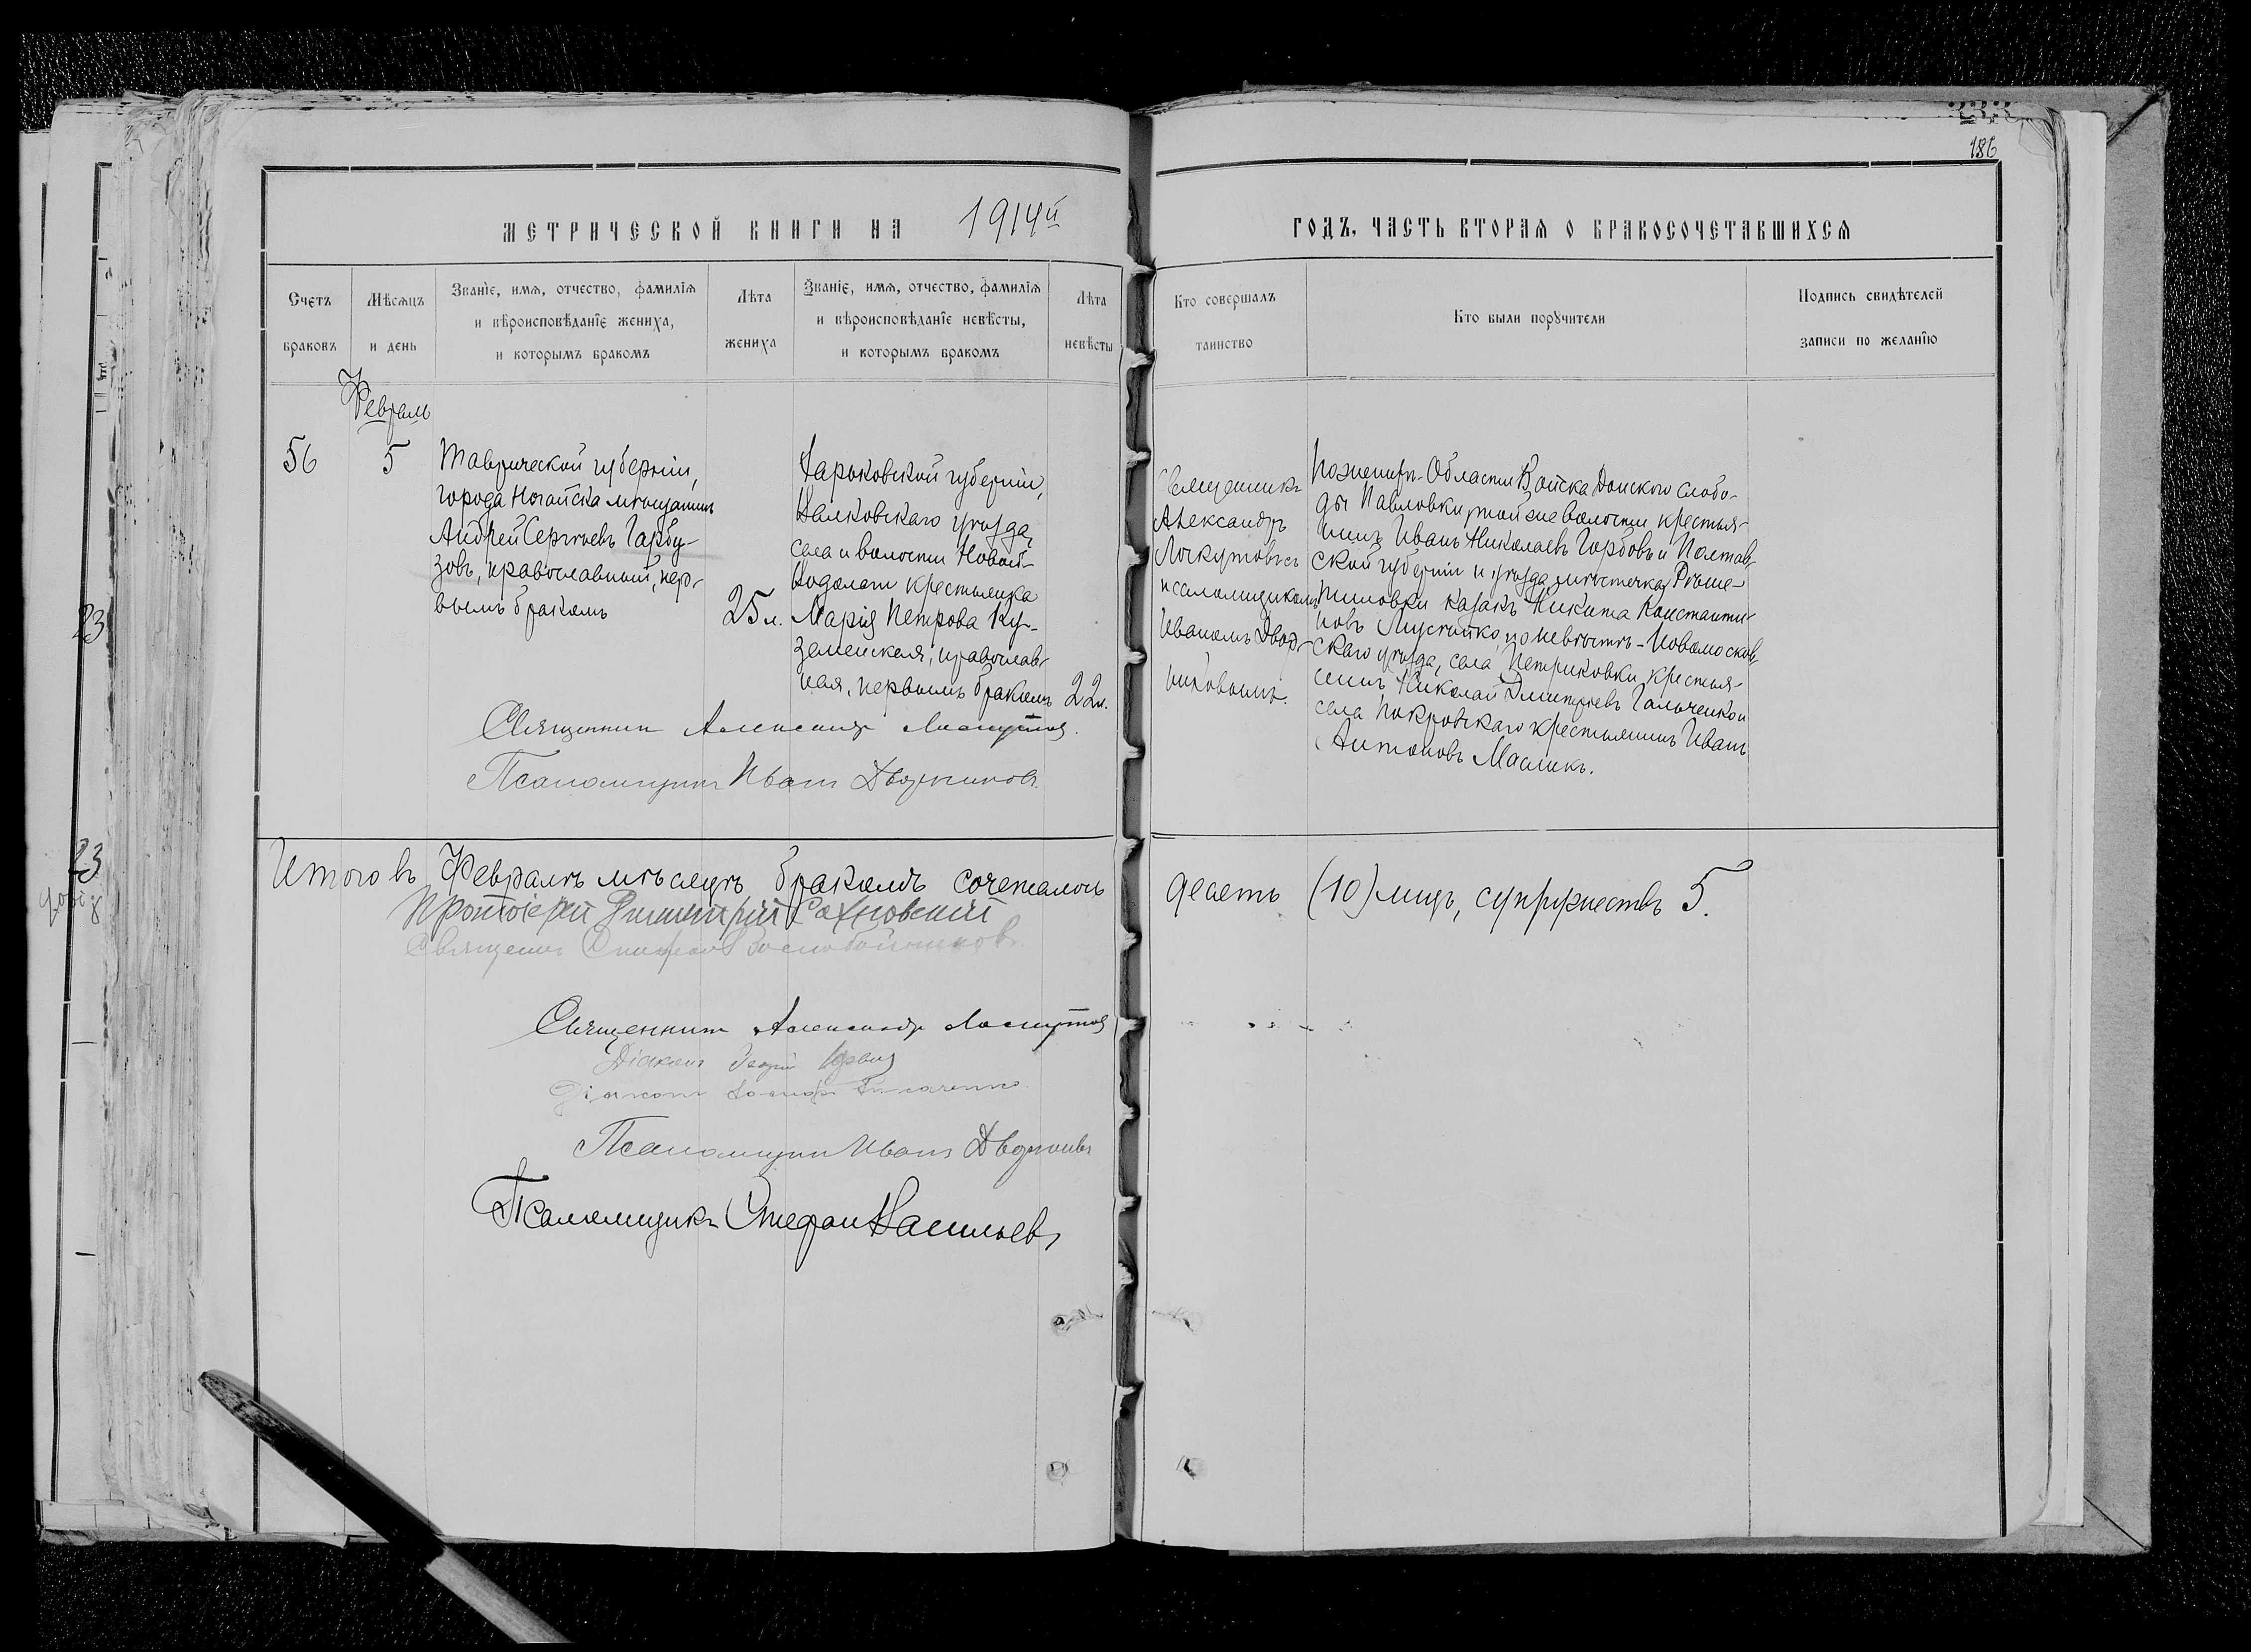 186
МЕТРИЧЕСКОЙ КНИГИ НА 1914й
ГОДЪ, ЧАСТЬ ВТОРАЯ О БРАКОСОЧЕТАВШИХСЯ
Счетъ
браковъ
Мѣсяцъ
и день
Званїе, имя, отчество, фамилїя
и вѣроисповѣданїе жениха,
и которымъ бракомъ
Лѣта
жениха
Званїе, имя, отчество, фамилїя
и вѣроисповѣданїе невѣсты,
и которымъ бракомъ
Лѣта
невѣсты
Кто совершалъ
таинство
Кто были порꙋчители
Подпись свидѣтелей
записи по желанїю
Февраль
56
5
Таврической губерніи,
города Ногайска мѣщанинъ
Андрей Сергѣевъ Гарбу-
зовъ, православный, пер-
вымъ бракомъ
25 л.
Харьковской губерніи,
Валковскаго уѣзда,
села и волости Новой-
Водолаги крестьянка
Марія Петрова Ку-
земенская, православ-
ная, первымъ бракомъ
22 л.
Священникъ
Александръ
Лоскутовъ съ
псаломщикомъ
Иваномъ Двор-
никовымъ.
По женихѣ - Области Войска Донского слобо-
ды Павловки, той же волости крестья-
нинъ Иванъ Николаевъ Горбовъ и Полтав-
ской губерніи и уѣзда, мѣстечка Рѣше-
тиловки казакъ Никита Константи-
новъ по невѣстѣ - Новомосков-
скаго уѣзда, села Петриковки крестья-
нинъ Николай Дмитріевъ Гальченко и
села Покровскаго крестьянинъ Иванъ
Антоновъ Масликъ.
Священникъ Александръ Лоскутовъ.
Псаломщикъ Иванъ Дворниковъ.
Итого въ Февралѣ мѣсяцѣ бракомъ сочеталось
десять (10) лицъ, супружествъ 5.
Протоіерей Димитрій Сахновскій
Священникъ
Священникъ Александръ Лоскутовъ
Діаконъ Георгій
Діаконъ
Псаломщикъ Иванъ Дворниковъ
Псаломщикъ Стефан Васильевъ
23
23